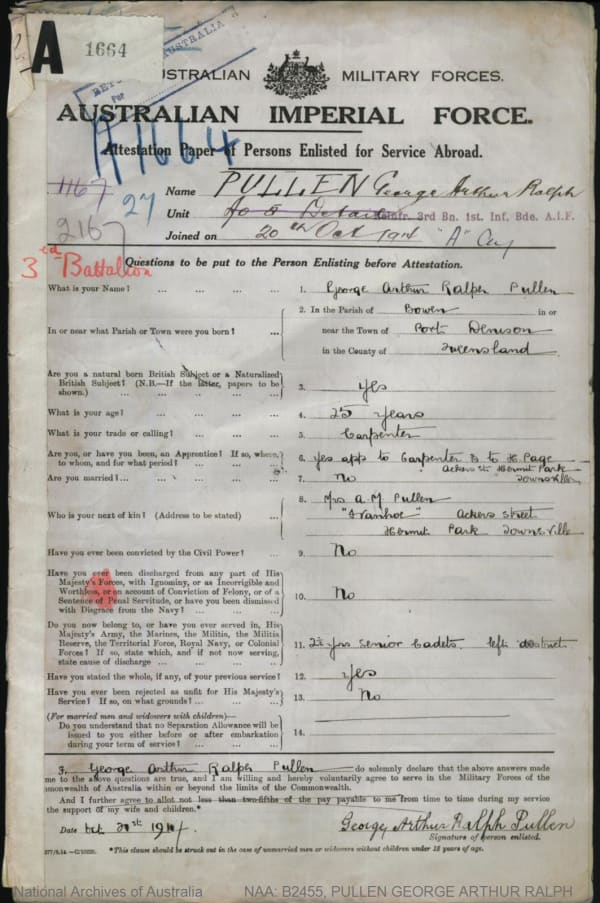 A 1664
AUSTRALIA
AUSTRALIAN MILITARY FORCES.
AUSTRALIAN IMPERIAL FORCE.
A 1664
Attestation Paper of Persons Enlisted for Service Abroad.
1167
27
Name PULLEN George Arthur Ralph
2167
Unit Reinfr. 3rd Bn. 1st. Inf, Bde. A.I.F.
Joined on 20th Oct 1914 "A" Coy
3rd Battalion
Questions to be put to the Person Enlisting before Attestation.
What is your Name? ... ... ... ... 1. George Arthur Ralph Pullen
In or near what Parish or Town were you born? ... 2. In the Parish of Bowen in or
near the Town of Port Denison
in the County of Queensland
Are you a natural born British Subject or a Naturalized
British Subject? (N.B.—If the latter, papers to be
shown.) ... ... ... ... 3. yes
What is your age? ... ... ... ... 4. 25 years
What is your trade or calling? ... ... ... 5. Carpenter
Are you, or have you been, an Apprentice? If so, where,
to whom, and for what period? ... ... ... 6. yes app to Carpenter to H. Page
Ackers St Hermit Park
Townsville
Are you married?... ... ... ... 7. No
Who is your next of kin? (Address to be stated) ... 8. Mrs A. M. Pullen
"Ivanhoe" Ackers Street
Hermit Park Townsville
Have you ever been convicted by the Civil Power? ... 9. No
Have you ever been discharged from any part of His
Majesty's Forces, with Ignominy, or as Incorrigible and
Worthless, or on account of Conviction of Felony, or of a
Sentence of Penal Servitude, or have you been dismissed
with Disgrace from the Navy? ... ... ... 10. No
Do you now belong to, or have you ever served in, His
Majesty's Army, the Marines, the Militia, the Militia
Reserve, the Territorial Force, Royal Navy, or Colonial
Forces? If so, state which, and if not now serving,
state cause of discharge ... ... ... 11. yrs Senior Cadets. left district
Have you stated the whole, if any, of your previous service? 12. yes
Have you ever been rejected as unfit for His Majesty's
Service? If so, on what grounds? ... ... ... 13. No
(For married men and widowers with children)—
Do you understand that no Separation Allowance will be
issued to you either before or after embarkation
during your term of service? ... ... ... 14.
I, George Arthur Ralph Pullen do solemnly declare that the above answers made
me to the above questions are true, and I am willing and hereby voluntarily agree to serve in the Military Forces of the
mmonwealth of Australia within or beyond the limits of the Commonwealth.
And I further agree to allot not less than two-fifths of the pay payable to me from time to time during my service
the support of my wife and children.*
Date Oct 20st 1914. George Arthur Ralph Pullen
Signature of person enlisted.
*This clause should be struck out in the case of unmarried men or widowers without children under 18 years of age.
National Archives of Australia NAA: B2455, PULLEN GEORGE ARTHUR RALPH